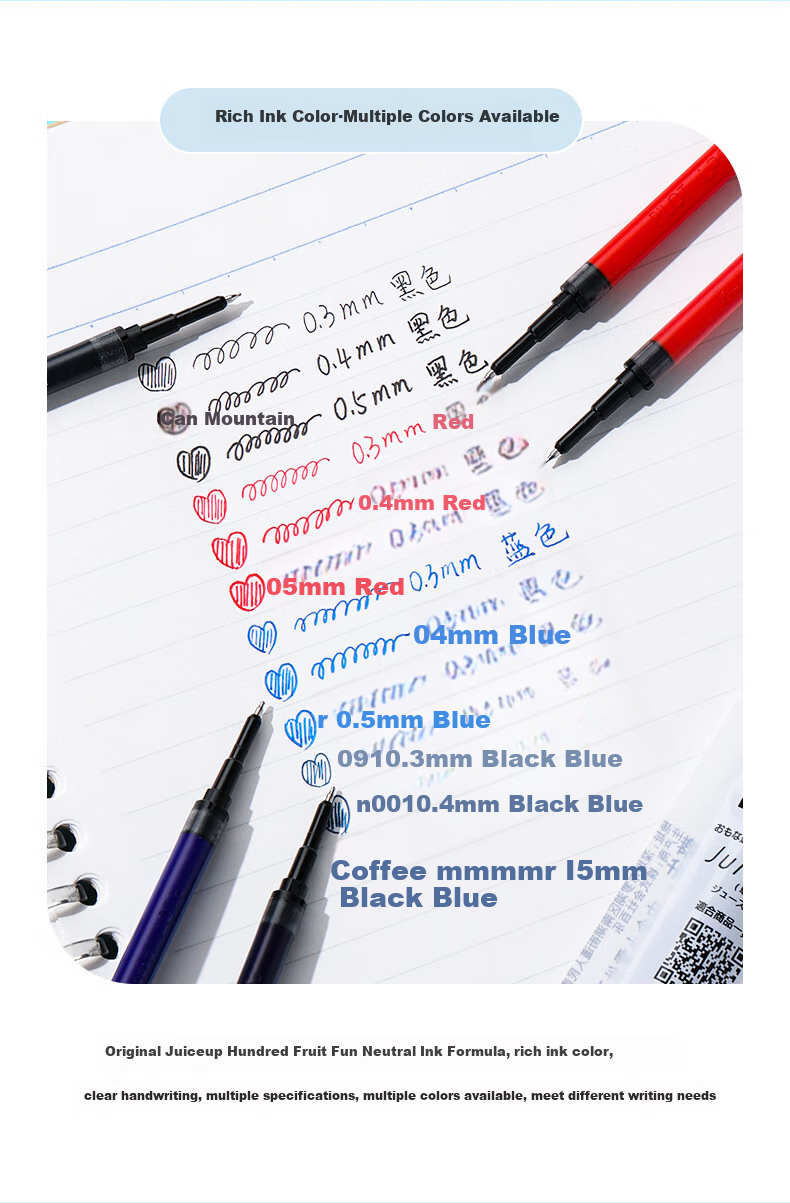 Rich Ink Color-Multiple Colors Available
0.3mm 黑色
0.4mm 黑色
0.5mm 黑色
Can Mountain
0.3mm Red
0.4mm Red
05mm Red
0.3mm 蓝色
04mm Blue
r 0.5mm Blue
0910.3mm Black Blue
n0010.4mm Black Blue
Coffee mmmmr I5mm
Black Blue
おもな
適合商品
Original Juiceup Hundred Fruit Fun Neutral Ink Formula, rich ink color,
clear handwriting, multiple specifications, multiple colors available, meet different writing needs